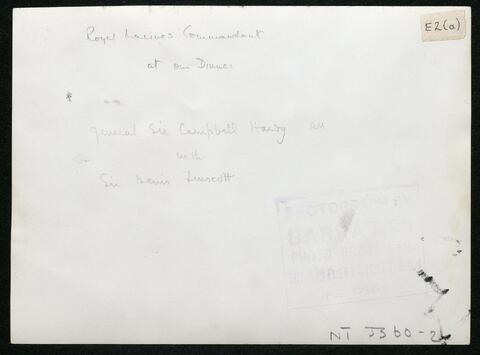 E2(a)
Royal Marines Commandant
at our Dinner
General Sir Campbell Hardy RM
with
Sir Denis Truscott
PHOTOGRAPH BY
PHOTO
NT JS60-2